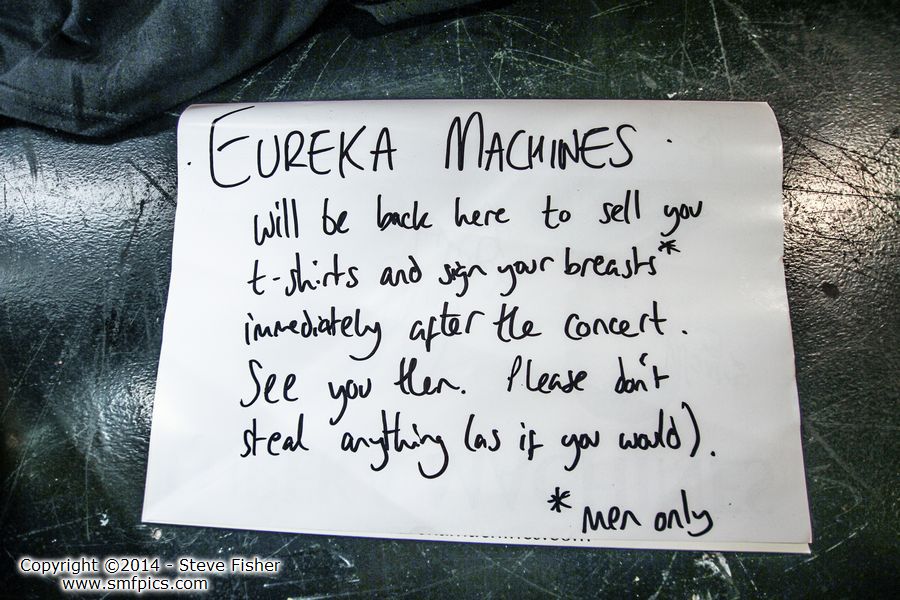 EUREKA MACHINES
will be back here to sell you
t-shirts and sign your breasts*
immediately after the concert.
See you then. Please don't
steal anything (as if you would).
* men only
Copyright ©2014 - Steve Fisher
www.smfpics.com